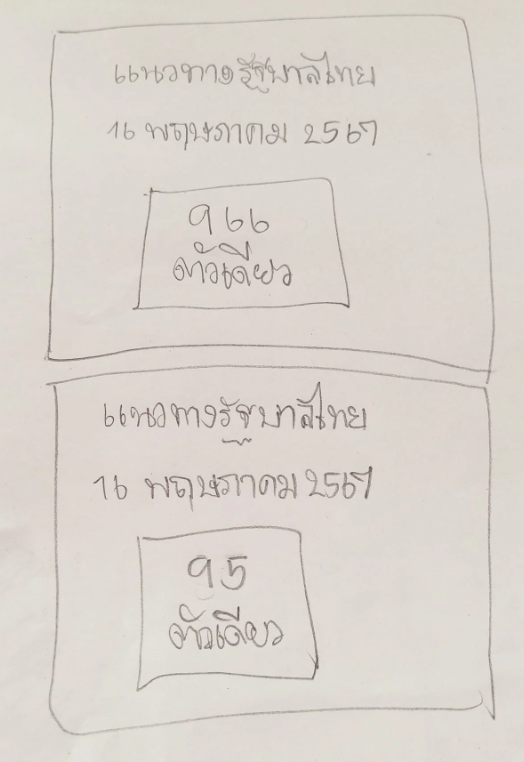 แนวทางรัฐบาลไทย
16 พฤษภาคม 2567
966
ตัวเดียว
แนวทางรัฐบาลไทย
16 พฤษภาคม 2567
95
ตัวเดียว